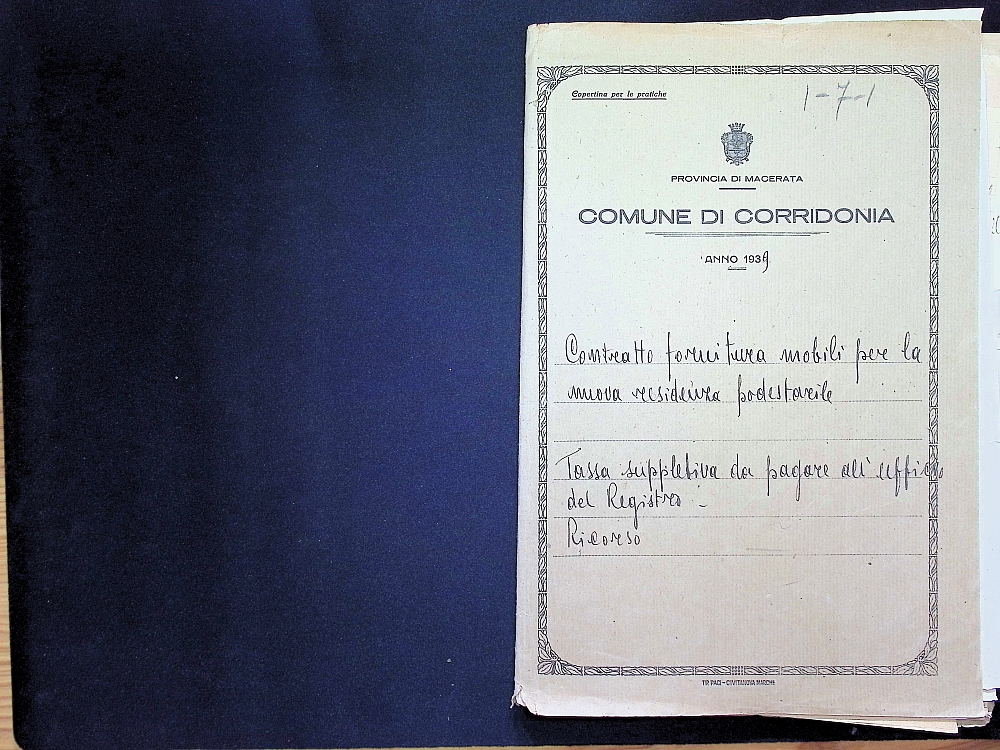 Copertina per le pratiche
1-7-1
PROVINCIA DI MACERATA
COMUNE DI CORRIDONIA
ANNO 1939
Contratto fornitura mobili per la
nuova residenza podestarile
Tassa suppletiva da pagare all'ufficio
del Registro -
Ricorso
TIP. PACI - CIVITANOVA MARCHE